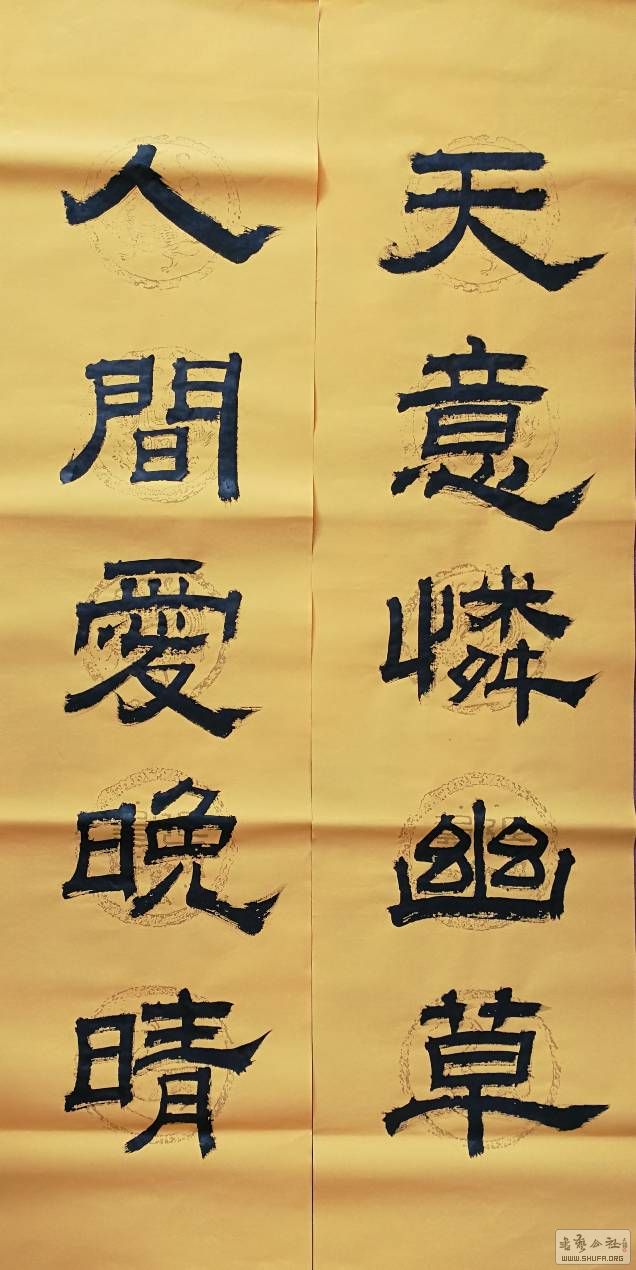 天意憐幽草
人間愛晚晴
書藝公社
WWW.SHUFA.ORG